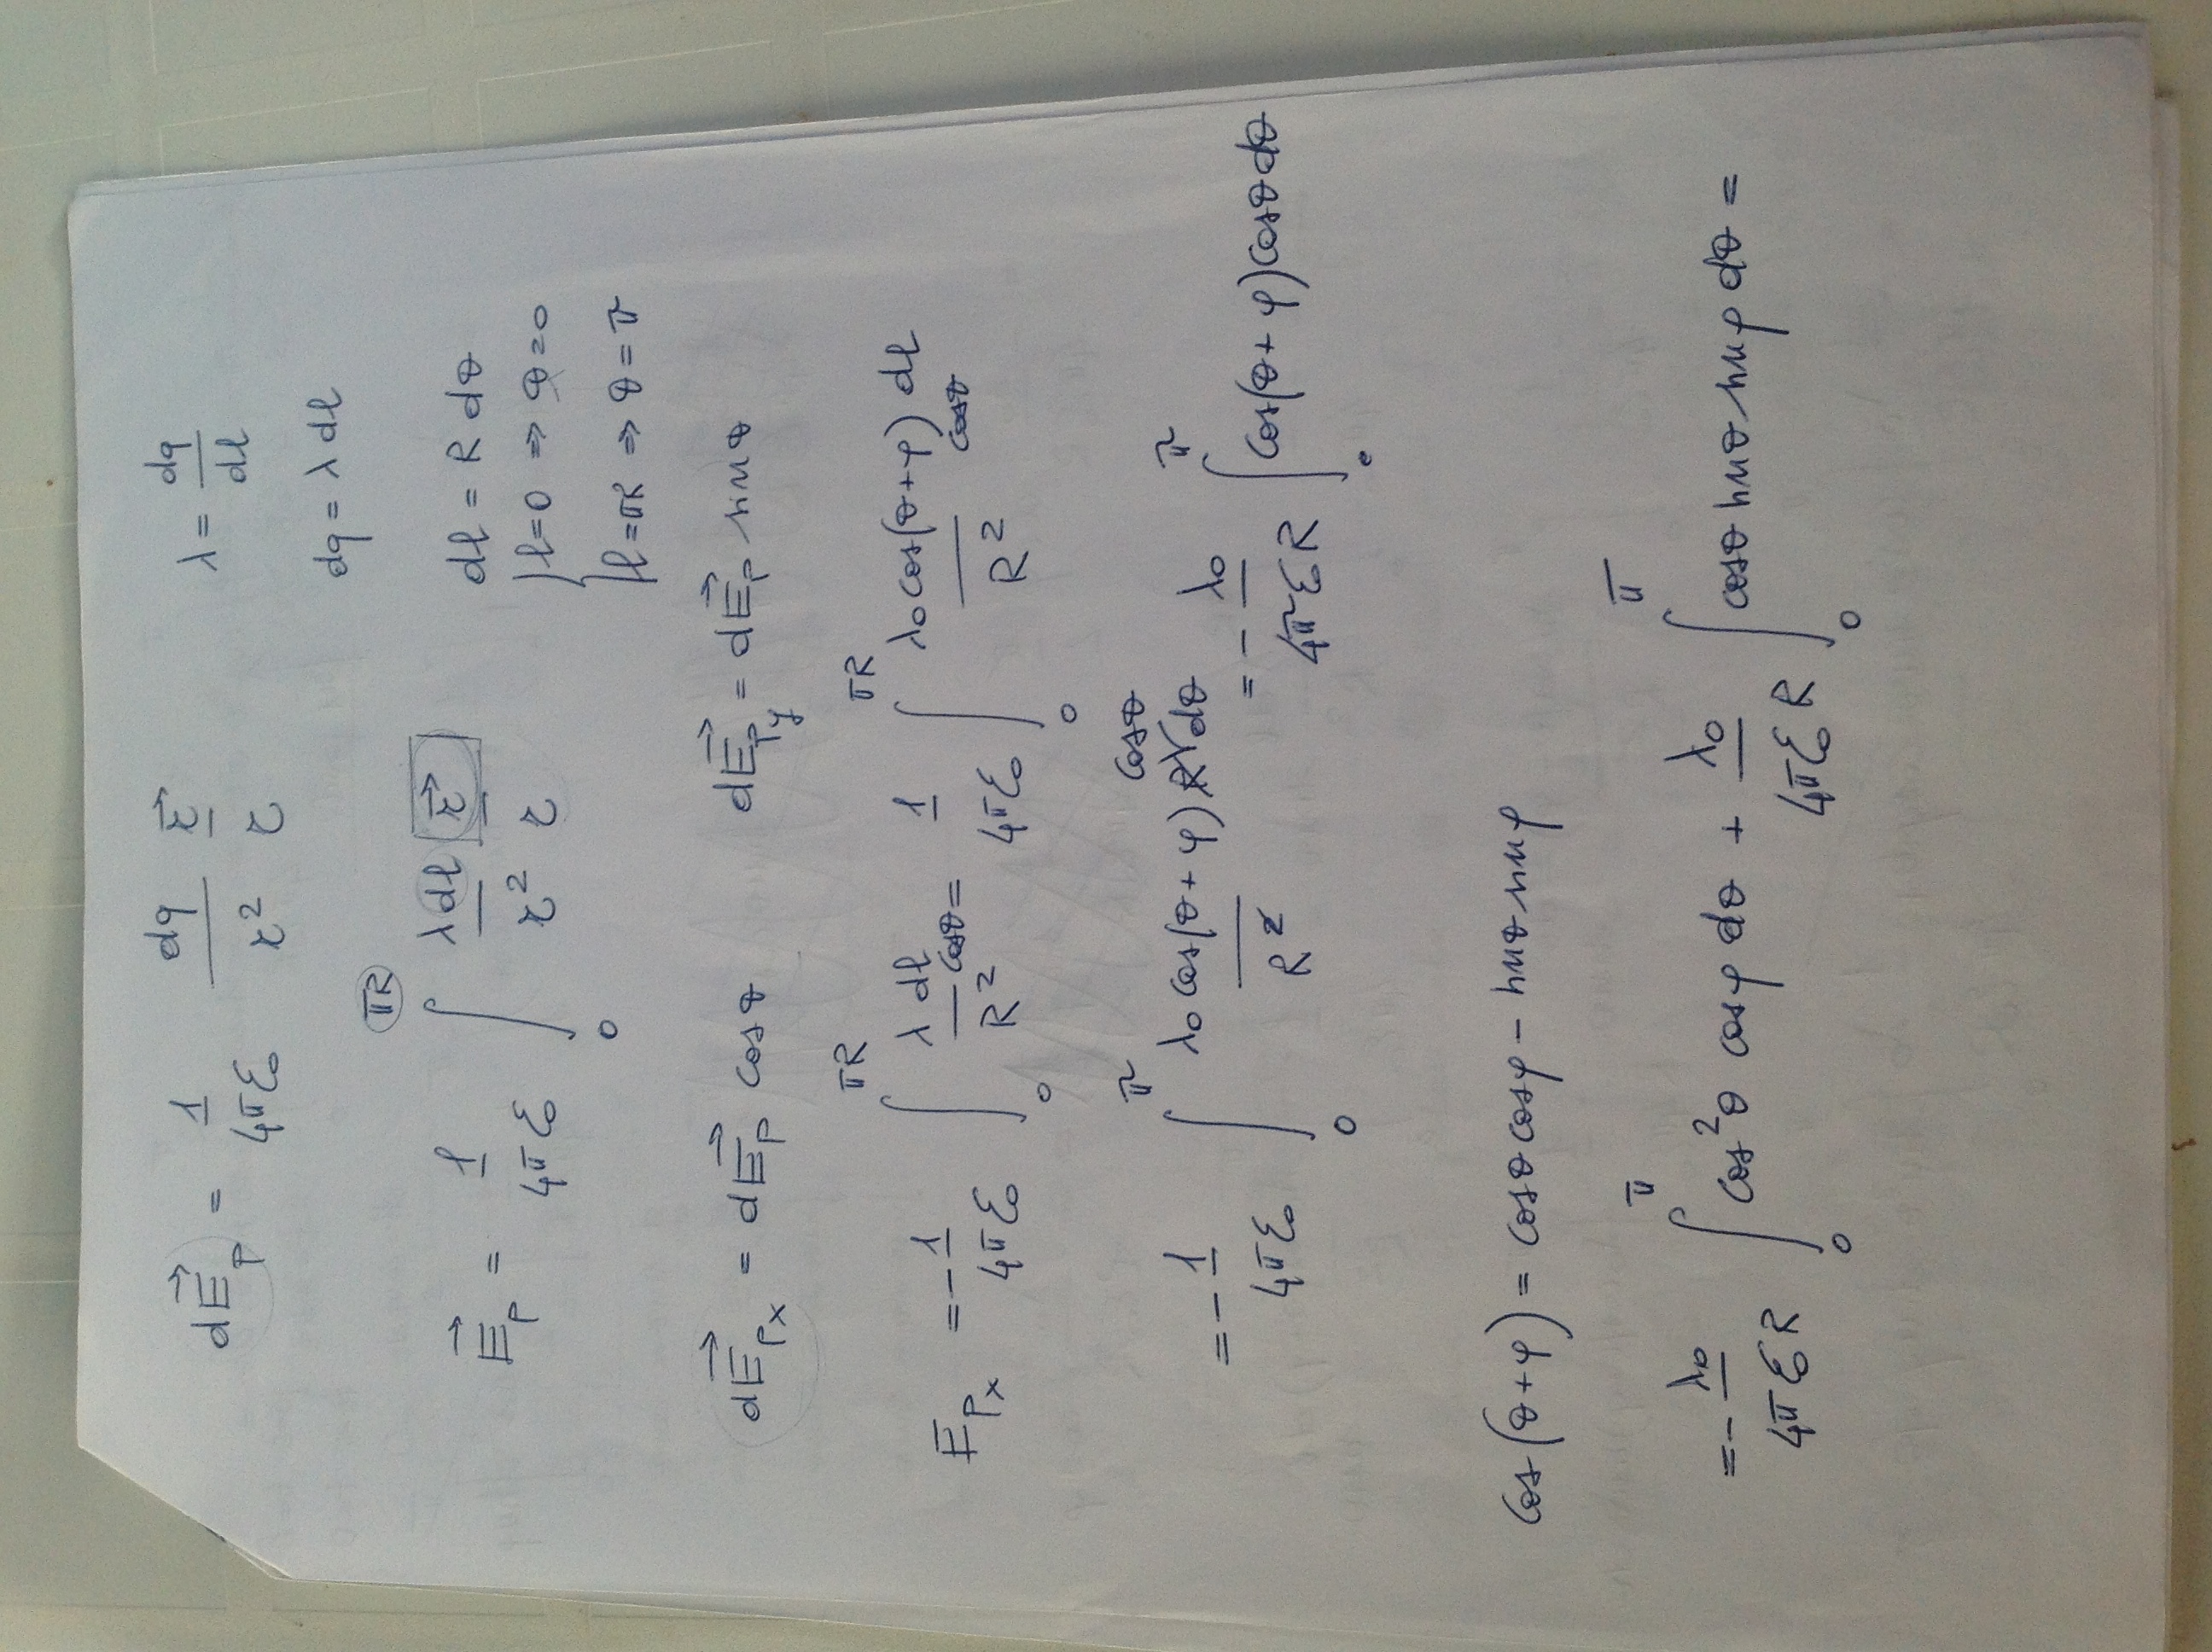 dE⃗_p = 1/4πε₀ dq/r² r⃗/r    λ = dq/dl
dq = λ dl
E⃗_p = 1/4πε₀ ∫₀^{πR} λ dl/r² r⃗/r    dl = R dθ
l=0 ⇒ θ=0
l=πR ⇒ θ=π
dE⃗_{px} = dE⃗_p cosθ    dE⃗_{py} = dE⃗_p sinθ
E_{px} = -1/4πε₀ ∫₀^{πR} λ dl/R² cosθ = 1/4πε₀ ∫₀^{πR} λ₀ cos(θ+φ) dl/R² cosθ
= -1/4πε₀ ∫₀^{π} λ₀ cos(θ+φ) R cosθ dθ/R² = -λ₀/4πε₀R ∫₀^{π} cos(θ+φ) cosθ dθ
cos(θ+φ) = cosθ cosφ - sinθ sinφ
= -λ₀/4πε₀R ∫₀^{π} cos²θ cosφ dθ + λ₀/4πε₀R ∫₀^{π} cosθ sinθ sinφ dθ =